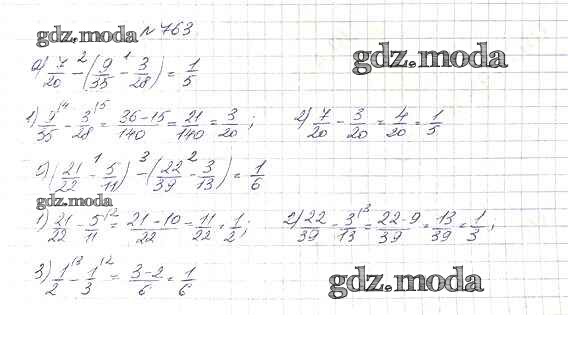 gdz.moda № 763
gdz.moda
а) 7/20 - (9/35 - 3/28) = 1/5
1) 9/35 - 3/28 = (36-15)/140 = 21/140 = 3/20; 2) 7/20 - 3/20 = 4/20 = 1/5
б) (21/22 - 5/11) - (22/39 - 3/13) = 1/6
gdz.moda
1) 21/22 - 5/11 = (21-10)/22 = 11/22 = 1/2; 2) 22/39 - 3/13 = (22-9)/39 = 13/39 = 1/3;
3) 1/2 - 1/3 = (3-2)/6 = 1/6
gdz.moda